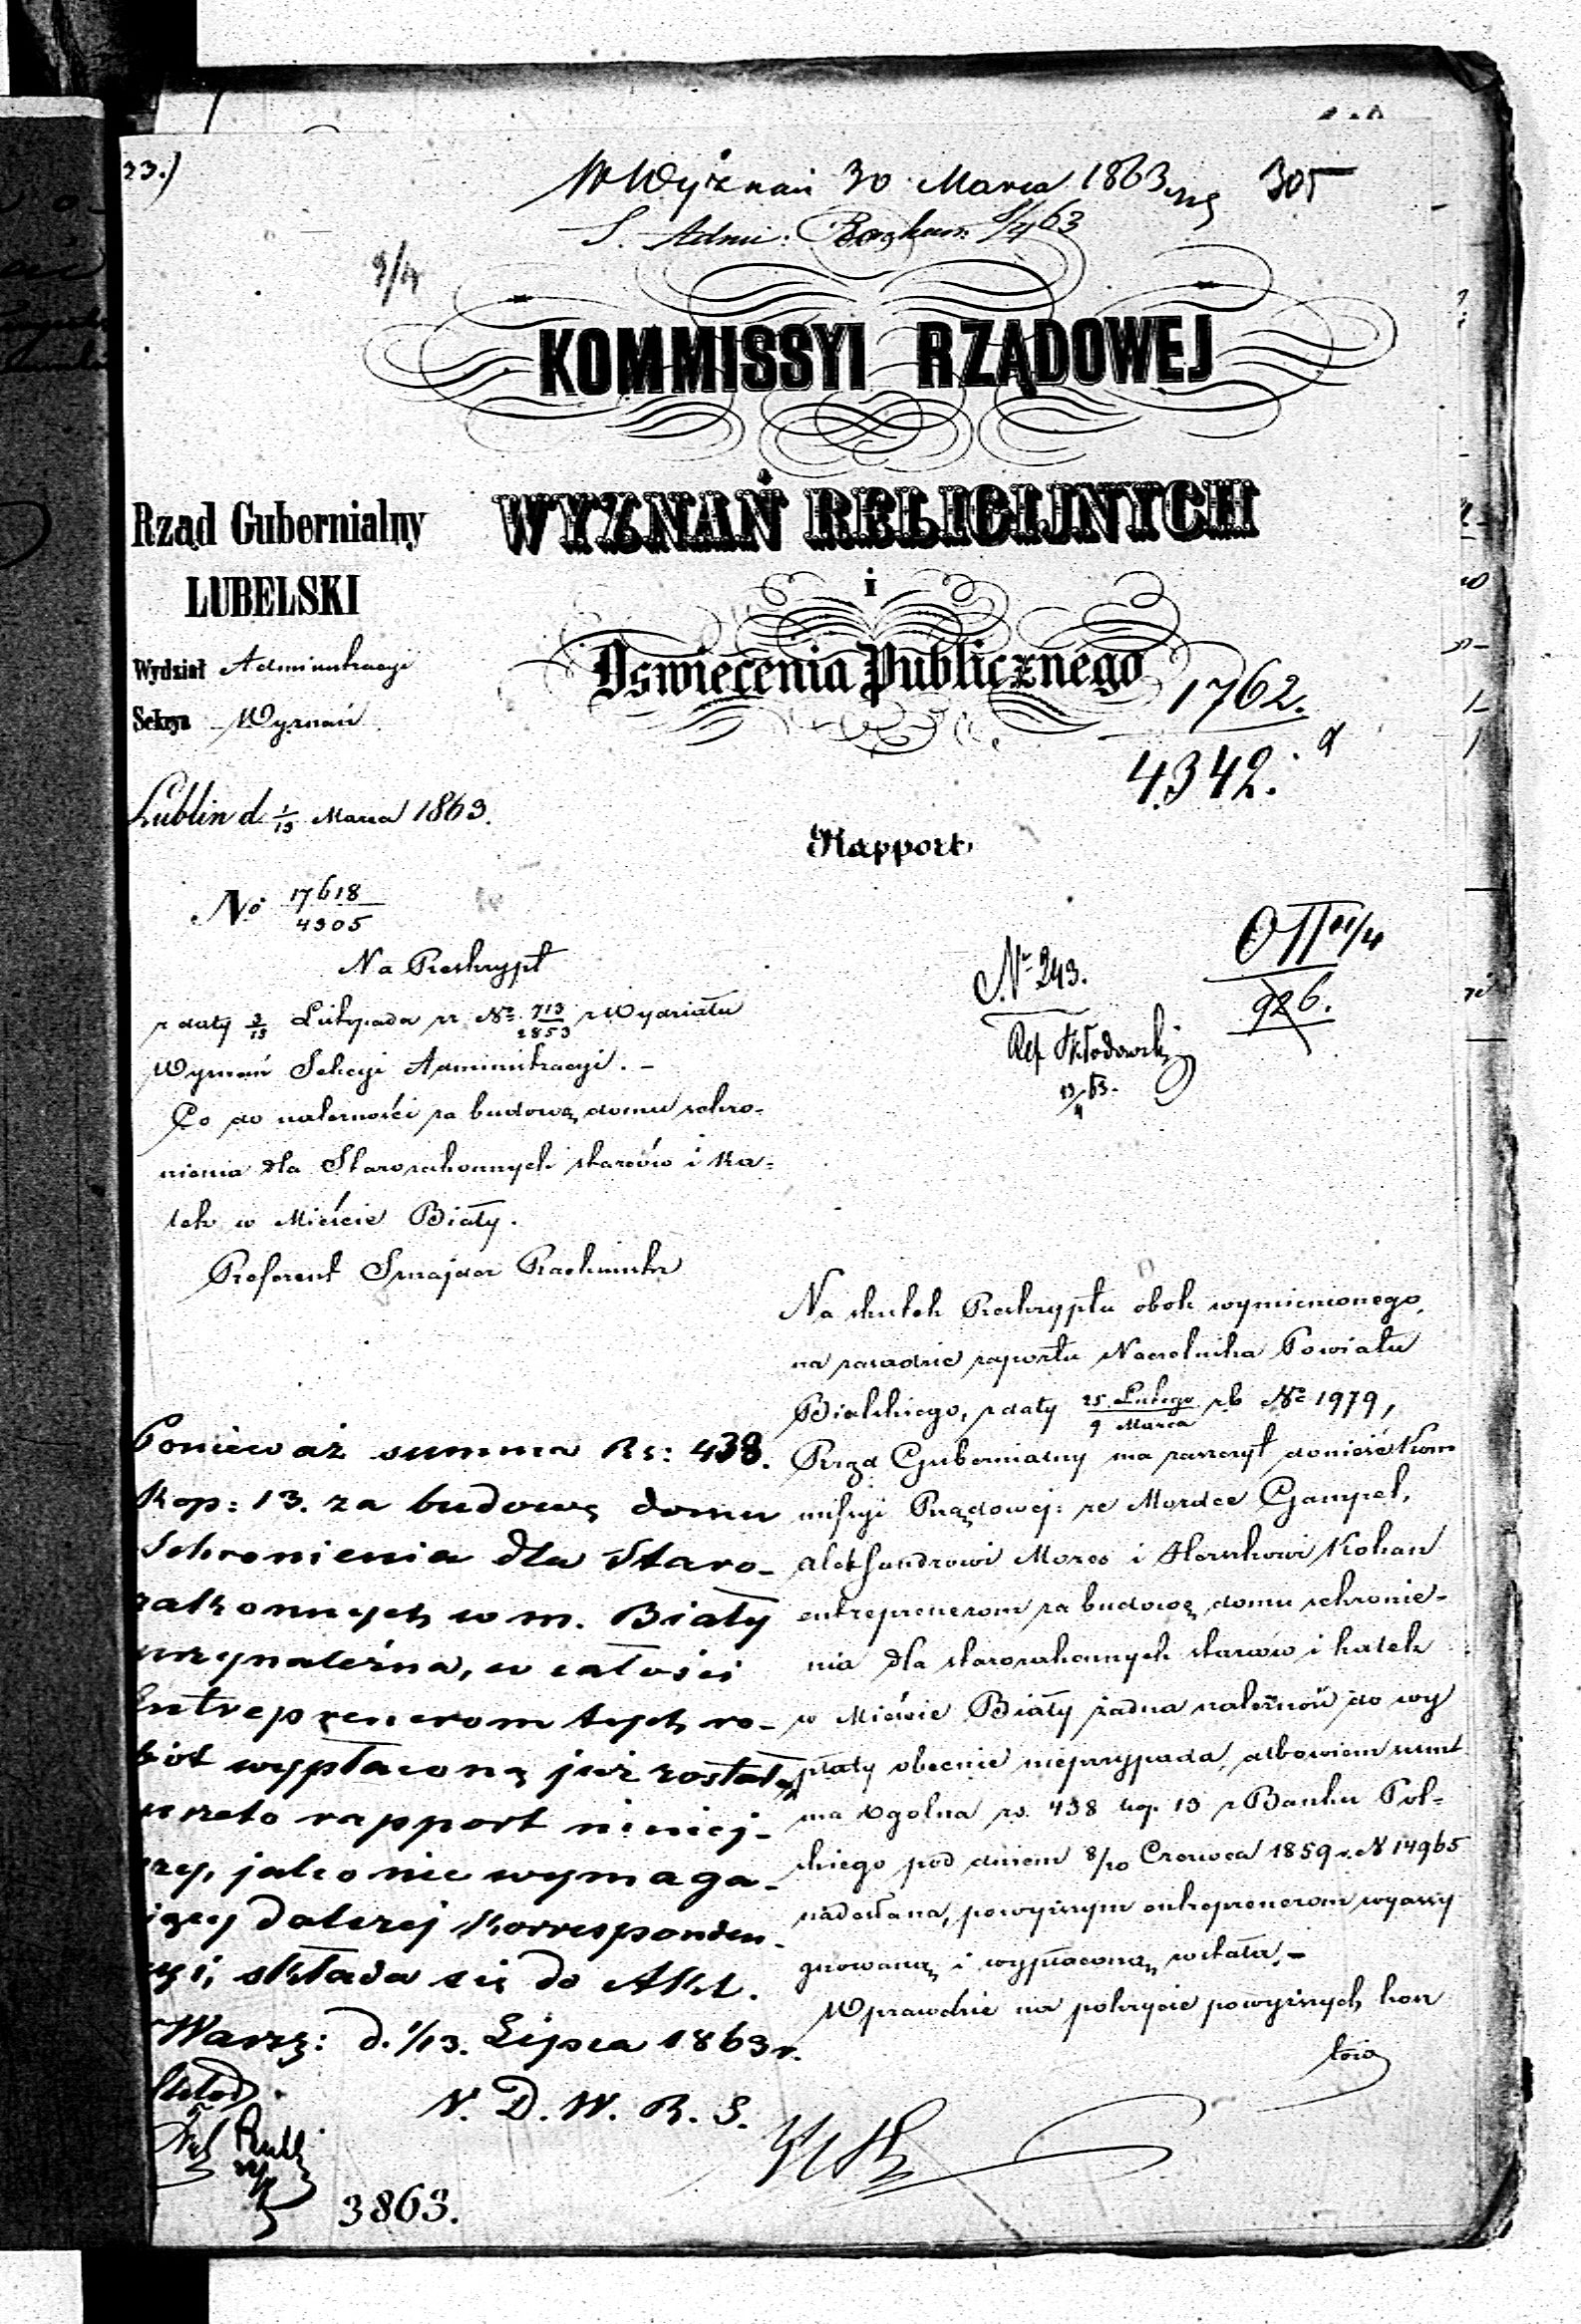 23.)
W Wyznań 30 Marca 1863
305
S. Admi:
9/4
KOMMISSYI RZĄDOWEJ
WYZNAŃ RELIGIJNYCH
i
Oświecenia Publicznego
1762.
4342.
Rapport
Rząd Gubernialny
LUBELSKI
Wydział Administracyi
Sekcya Wyznań
Lublin d. 1/13 Marca 1863.
No 17618/4305
Na Reskrypt
z daty 3/15 Listopada rz No 713/2853 z Wydziału
Wyznań Sekcyi Administracyi. –
Co do należności za budowę domu schro-
nienia dla Starozakonnych starców i ka-
lek w Mieście Biały.
Referent Smajdor
No 243.
Ref Skłodowski
13/4 63.
926.
Na skutek Reskryptu obok wymienionego,
na zasadzie raportu Naczelnika Powiatu
Bialskiego, z daty 25 Lutego/9 Marca rb No 1979,
Rząd Gubernialny ma zaszczyt donieść Kom
missyi Rządowej: że Mordce Gampel,
Aleksandrowi Moreo i Herszkowi Kohan
entreprenerom za budowę domu schronie-
nia dla starozakonnych starców i kalek
w Mieście Biały żadna należność do wy
płaty obecnie nieprzypada, albowiem sum
ma ogólna rs. 438 kop. 13 z Banku Pol-
skiego pod dniem 8/20 Czerwca 1859 r. N 14965
nadesłana, powyższym entreprenerom wyassy
gnowaną i wypłaconą została. –
Wprawdzie na pokrycie powyższych kosz
tów
Ponieważ summa Rs: 438.
Kop: 13. za budowę domu
Schronienia dla Staro-
zakonnych w m. Biały
przynależna, w całości
Entreprenerom tych ro-
bót wypłaconą już została,
przeto rapport niniej-
szy, jako nie wymaga-
jący dalszej Korresponden-
cyi, składa się do Akt.
Warsz: d. 1/13. Lipca 1863 r.
N. D. W. R. S.
3863.